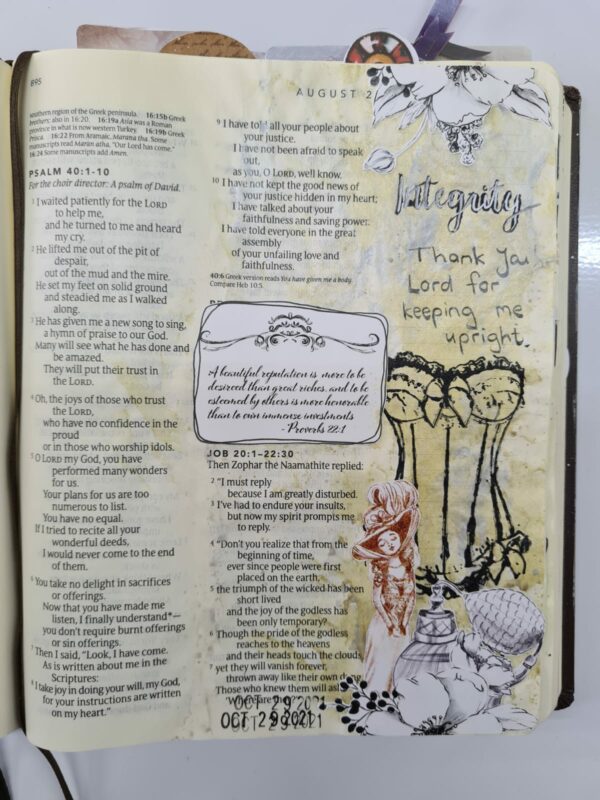 895
AUGUST 2
southern region of the Greek peninsula. 16:15b Greek
brothers; also in 16:20. 16:19a Asia was a Roman
province in what is now western Turkey. 16:19b Greek
Prisca. 16:22 From Aramaic, Marana tha. Some
manuscripts read Maran atha, "Our Lord has come."
16:24 Some manuscripts add Amen.
PSALM 40:1-10
For the choir director: A psalm of David.
1 I waited patiently for the LORD
to help me,
and he turned to me and heard
my cry.
2 He lifted me out of the pit of
despair,
out of the mud and the mire.
He set my feet on solid ground
and steadied me as I walked
along.
3 He has given me a new song to sing,
a hymn of praise to our God.
Many will see what he has done and
be amazed.
They will put their trust in
the LORD.
4 Oh, the joys of those who trust
the LORD,
who have no confidence in the
proud
or in those who worship idols.
5 O LORD my God, you have
performed many wonders
for us.
Your plans for us are too
numerous to list.
You have no equal.
If I tried to recite all your
wonderful deeds,
I would never come to the end
of them.
6 You take no delight in sacrifices
or offerings.
Now that you have made me
listen, I finally understand*—
you don't require burnt offerings
or sin offerings.
7 Then I said, "Look, I have come.
As is written about me in the
Scriptures:
8 I take joy in doing your will, my God,
for your instructions are written
on my heart."
9 I have told all your people about
your justice.
I have not been afraid to speak
out,
as you, O LORD, well know.
10 I have not kept the good news of
your justice hidden in my heart;
I have talked about your
faithfulness and saving power.
I have told everyone in the great
assembly
of your unfailing love and
faithfulness.
40:6 Greek version reads You have given me a body.
Compare Heb 10:5.
A beautiful reputation is more to be
desireed than great riches, and to be
esteemed by others is more honorable
than to own immense investments
- Proverbs 22:1
JOB 20:1–22:30
Then Zophar the Naamathite replied:
2 "I must reply
because I am greatly disturbed.
3 I've had to endure your insults,
but now my spirit prompts me
to reply.
4 "Don't you realize that from the
beginning of time,
ever since people were first
placed on the earth,
5 the triumph of the wicked has been
short lived
and the joy of the godless has
been only temporary?
6 Though the pride of the godless
reaches to the heavens
and their heads touch the clouds,
7 yet they will vanish forever,
thrown away like their own dung.
Those who knew them will ask,
'Where are
OCT 29 2021
OCT 29 2021
Integrity
Thank You
Lord for
keeping me
upright.